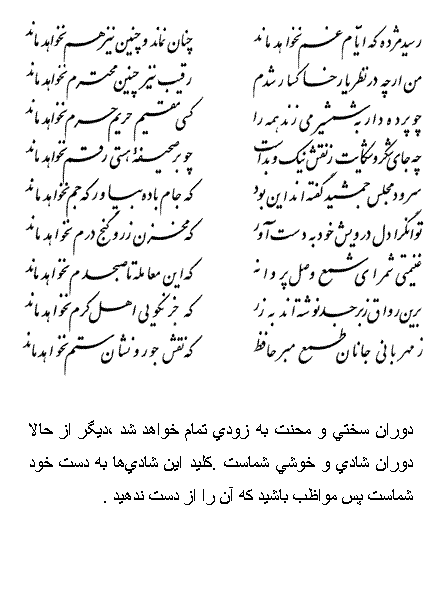 رسید مژده که ایام غم نخواهد ماند چنان نماند و چنین نیز هم نخواهد ماند
من ارچه در نظر یار خاکسار شدم رقیب نیز چنین محترم نخواهد ماند
چو پرده دار به شمشیر می زند همه را کسی مقیم حریم حرم نخواهد ماند
چه جای شکر و شکایت ز نقش نیک و بد است چو بر صحیفهٔ هستی رقم نخواهد ماند
سرود مجلس جمشید گفته اند این بود که جام باده بیاور که جم نخواهد ماند
توانگرا دل درویش خود به دست آور که مخزن زر و گنج درم نخواهد ماند
غنیمتی شمر ای شمع وصل پروانه که این معامله تا صبحدم نخواهد ماند
برین رواق زبرجد نوشته اند به زر که جز نکویی اهل کرم نخواهد ماند
ز مهربانی جانان طمع مبر حافظ که نقش جور و نشان ستم نخواهد ماند
دوران سختي و محنت به زودي تمام خواهد شد ،ديگر از حالا
دوران شادي و خوشي شماست .کليد اين شادي‌ها به دست خود
شماست پس مواظب باشيد که آن را از دست ندهيد .